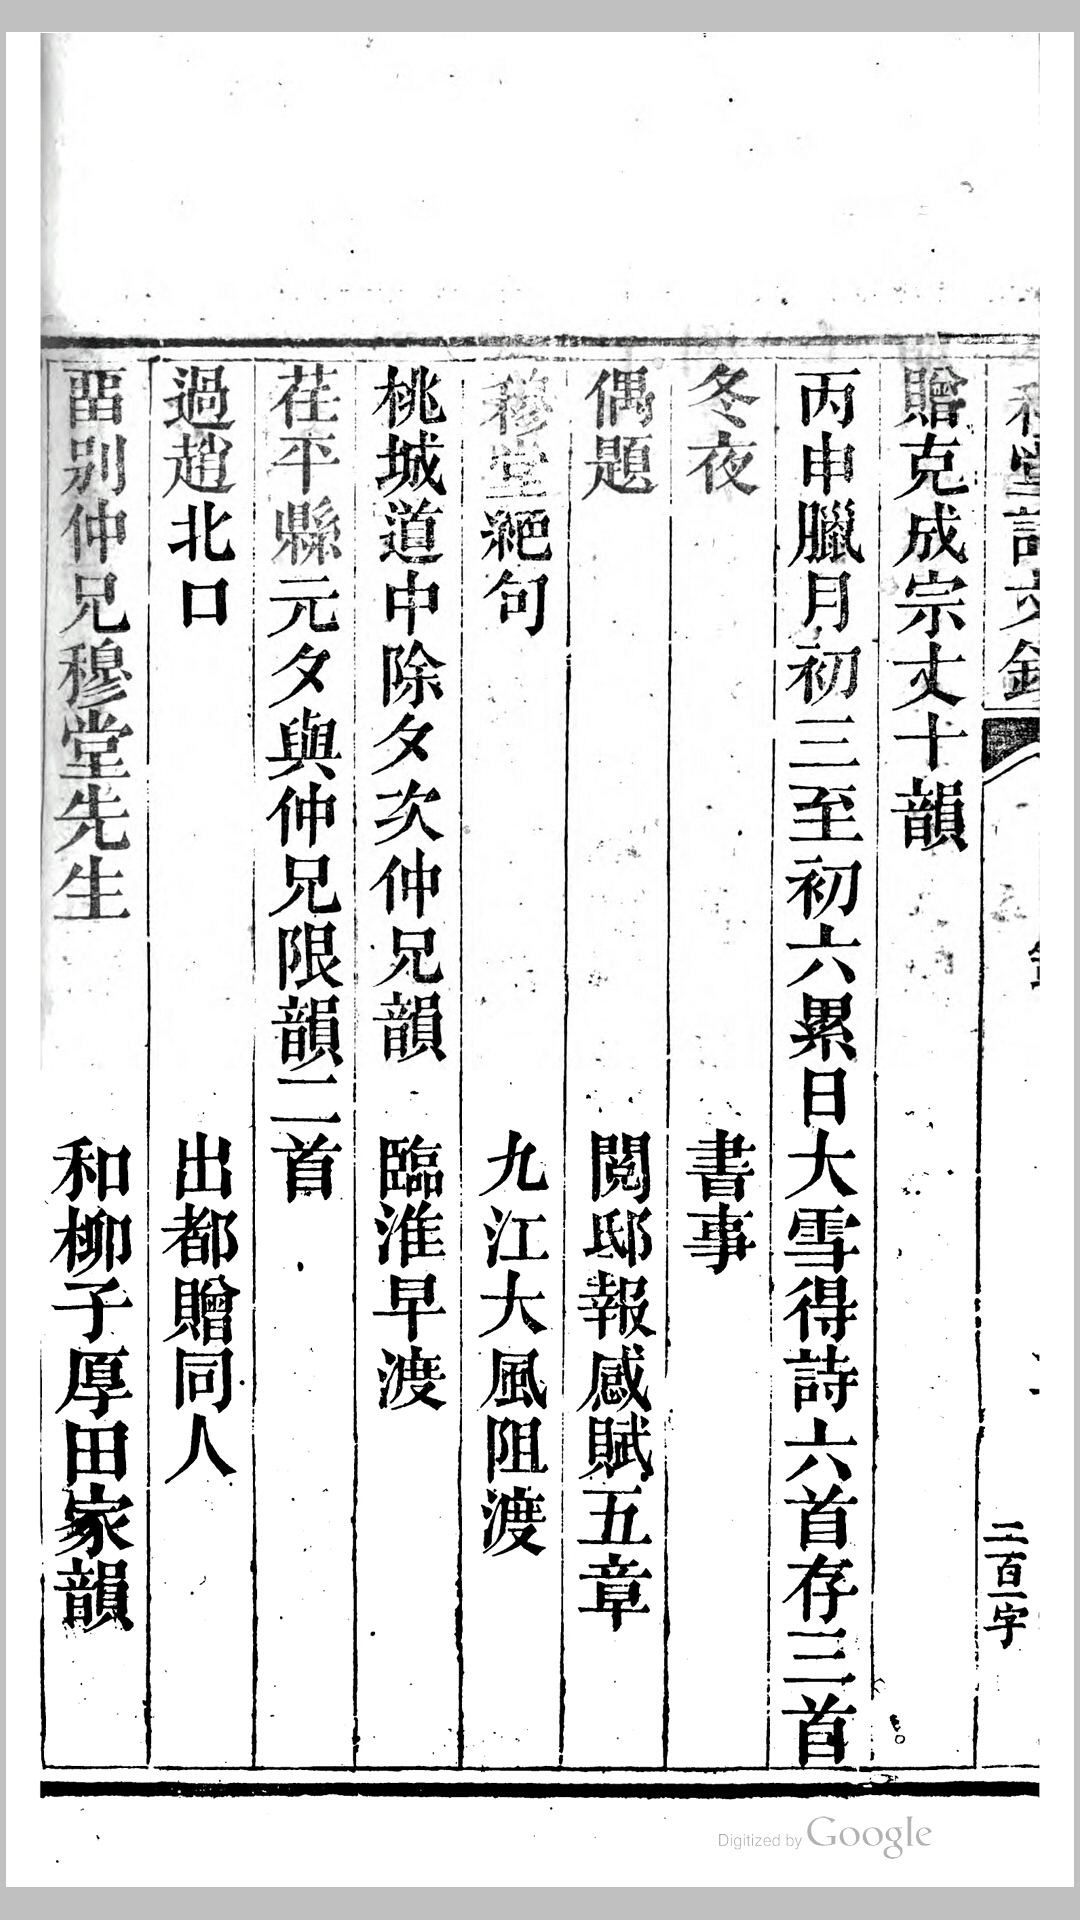 堂詩文鈔
二百一字
贈克成宗丈十韻
丙申臘月初三至初六累日大雪得詩六首存三首
冬夜　書事
偶題　閱邸報感賦五章
穆堂絕句　九江大風阻渡
桃城道中除夕次仲兄韻　臨淮早渡
茌平縣元夕與仲兄限韻二首
過趙北口　出都贈同人
畱别仲兄穆堂先生　和柳子厚田家韻
Digitized by Google